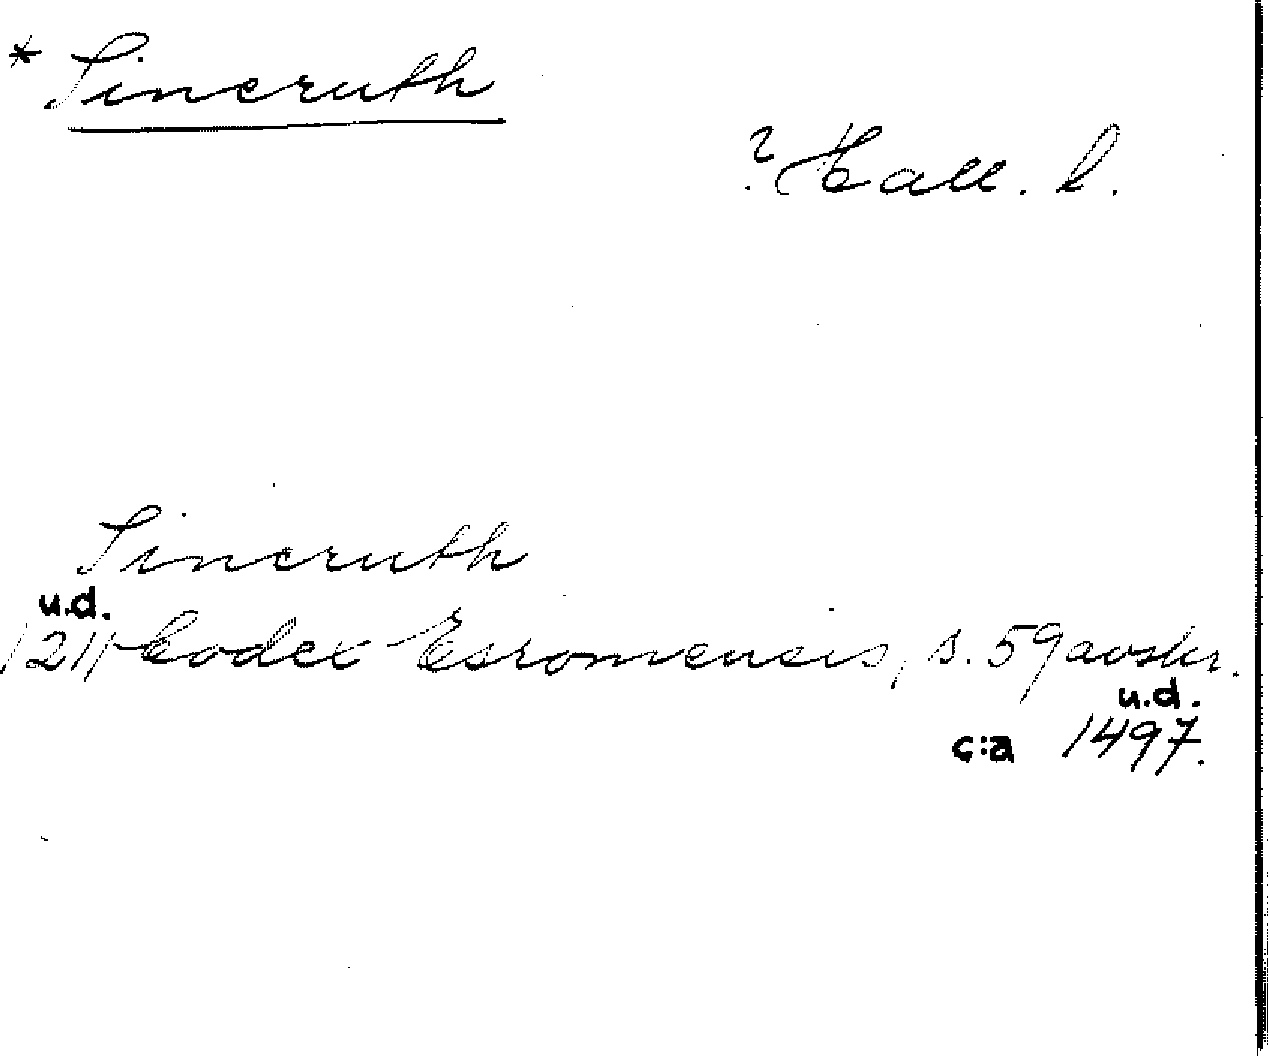 * Sineruth
? Hall. l.
Sineruth
u.d.
1211 Codex Esromensis, s. 59 avskr.
u.d.
c:a 1497.